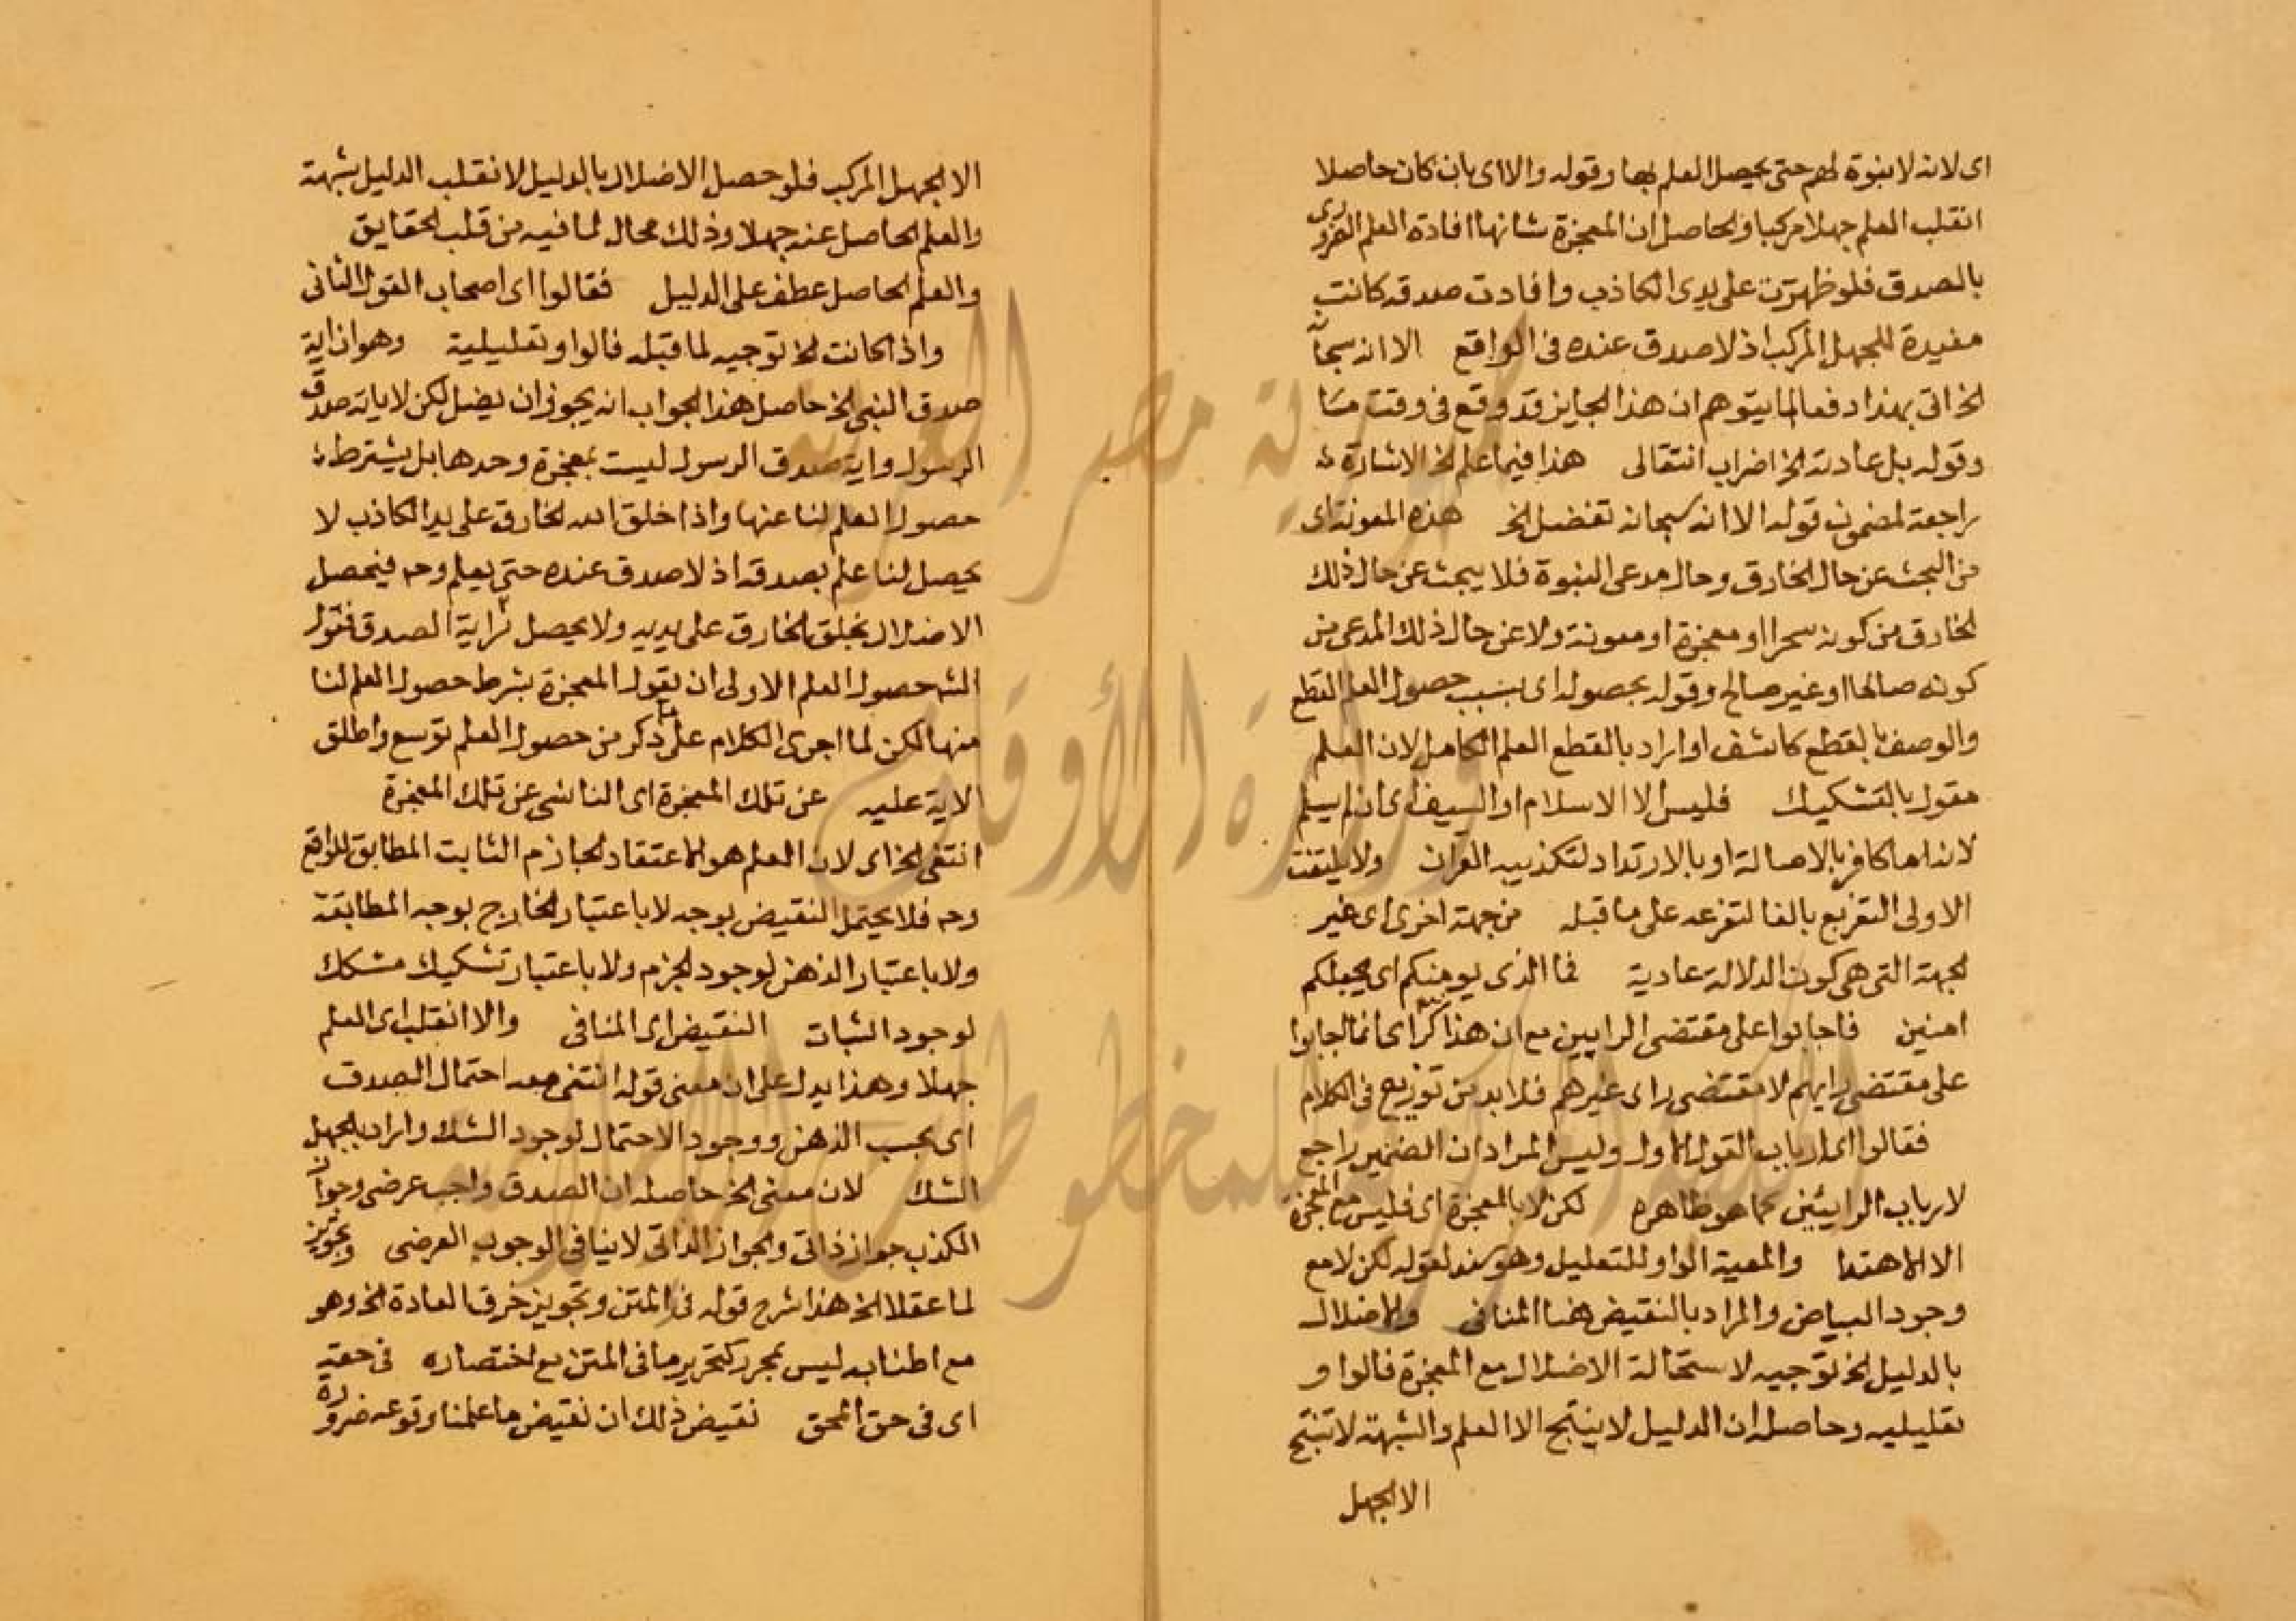 اى لانه لا نبوة لهم حتى يحصل العلم بها وقوله والا اى بان كان حاصلا
انقلب العلم جهلا مركبا والحاصل ان المعجزة شانها افادة العلم الضرورى
بالصدق فلو ظهرت على يدى الكاذب وافادت صدقه كانت
مفيدة للجهل المركب اذ لا صدق عنده فى الواقع الا انه سبحانه
الخ اتى بهذا دفعا لما يتوهم ان هذا الجايز قد وقع فى وقت مّا
وقوله بل عادته الخ اضراب انتقالى هذا فيما علم الخ الاشارة
راجعة لمضمون قوله الا انه سبحانه تفضل الخ هذه المعونة اى
من البحث عن حال الخارق وحال مدعى النبوة فلا يبحث عن حال ذلك
الخارق من كونه سحرا او معجزة او معونة ولا عن حال ذلك المدعى من
كونه صالحا او غير صالح وقوله بحصول اى بسبب حصول العلم القطع
والوصف بالقطع كاشف او اراد بالقطع العلم الكامل لان العلم
مقول بالتشكيك فليس الا الاسلام او السيف اى ان لم يسلم
لانه اما كافر بالاصالة او بالارتداد لتكذيبه القران ولا يلتفت
الاولى التفريع بالفا لتفرعه على ما قبله من جهة اخرى اى غير
الجهة التى هى كون الدلالة عادية فما الذى يومنكم اى يجعلكم
امنين فاجابوا على مقتضى الرايين مع ان هذا اى انما اجابوا
على مقتضى رايهم لا مقتضى راى غيرهم فلا بد من توزيع فى الكلام
فقالوا اى ارباب القول الاول وليس المراد ان الضمير راجع
لارباب الرايين كما هو ظاهره لكن لا بالمعجزة اى فليس مع المعجزة
الا الاهتدا والمعية الواو للتعليل وهو سند لقوله لكن لا مع
وجود البياض والمراد بالنقيض هنا المنافى والاضلال
بالدليل الخ توجيه لاستحالة الاضلال مع المعجزة فالواو
تعليليه وحاصله ان الدليل لا ينتج الا العلم والشبهة لا تنتج
الا الجهل
الا الجهل المركب فلو حصل الاضلال بالدليل لانقلب الدليل شبهة
والعلم الحاصل عنه جهلا وذلك محال لما فيه من قلب الحقايق
والعلم الحاصل عطف على الدليل فقالوا اى اصحاب القول الثانى
واذا كانت الخ توجيه لما قبله فالواو تعليلية وهو ان اية
صدق النبى الخ حاصل هذا الجواب انه يجوز ان يضل لكن لا باية صدق
الرسول واية صدق الرسول ليست بمعجزة وحدها بل يشترط
حصول العلم لنا عنها واذا خلق الله الخارق على يد الكاذب لا
يحصل لنا علم بصدقه اذ لا صدق عنده حتى يعلم وح فيحصل
الاضلال بخلق الخارق على يديه ولا يحصل اية الصدق فقول
الش حصول العلم الاولى ان يقول المعجزة بشرط حصول العلم لنا
منها لكن لما اجرى الكلام على ما ذكر من حصول العلم توسع واطلق
الاية عليه عن تلك المعجزة اى الناشى عن تلك المعجزة
انتفى الخ اى لان العلم هو الاعتقاد الجازم الثابت المطابق للواقع
وح فلا يحتمل النقيض بوجه لا باعتبار الخارج لوجه المطابقة
ولا باعتبار الذهن لوجود الجزم ولا باعتبار تشكيك مشكك
لوجود الثبات النقيض اى المنافى والا انقلب اى العلم
جهلا وهذا يدل على ان معنى قوله انتفى معه احتمال الصدق
اى بحسب الذهن ووجود الاحتمال لوجود الشك واراد بالجهل
الشك لان معنى الخ حاصله ان الصدق واجب عرضى وجواز
الكذب جواز ذاتى والجواز الذاتى لا ينافى الوجوب العرضى وتجويز
لما عقلا الخ هذا شرح قوله فى المتن وتجويز خرق العادة الخ وهو
مع اطنابه ليس بمجرد كتحرير ما فى المتن مع اختصاره فى حقه
اى فى حق المحق نقيض ذلك ان نقيض ما علمنا وقوعه ضرورة